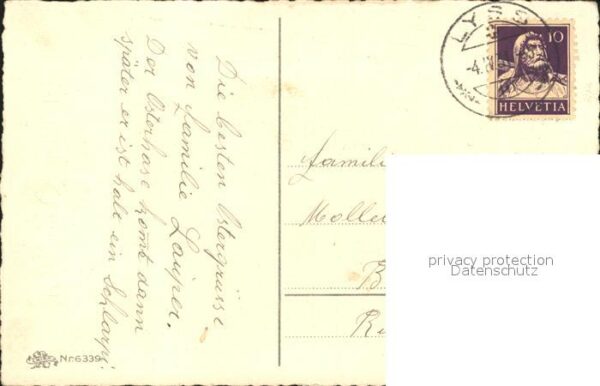 Die besten Ostergrüsse
von Familie Lauper.
Der Osterhase komt dann
später er ist halt ein Schlarpi.
Nr. 6339
LYSS
-4.IV
10
HELVETIA
Famili
Molle
B
privacy protection
Datenschutz